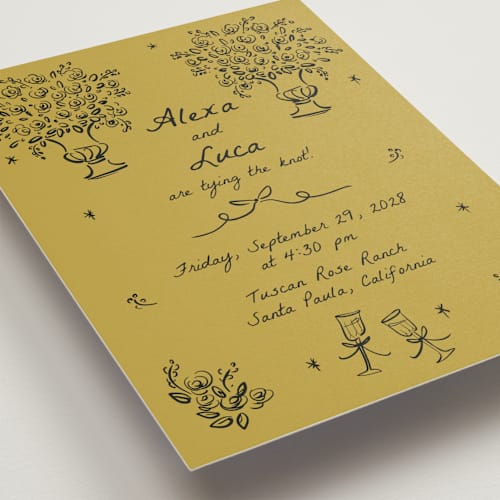 Alexa
and
Luca
are tying the knot!
Friday, September 29, 2028
at 4:30 pm
Tuscan Rose Ranch
Santa Paula, California